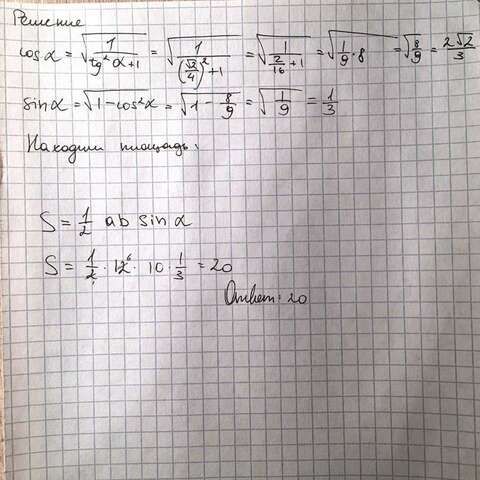 Решение
cos α = √(1/(tg² α + 1)) = √(1/((√2/4)² + 1)) = √(1/(2/16 + 1)) = √(1/9 · 8) = √(8/9) = 2√2/3
sin α = √(1 - cos² α) = √(1 - 8/9) = √(1/9) = 1/3
Находим площадь:
S = 1/2 ab sin α
S = 1/2 · 12⁶ · 10 · 1/3 = 20
Ответ: 20